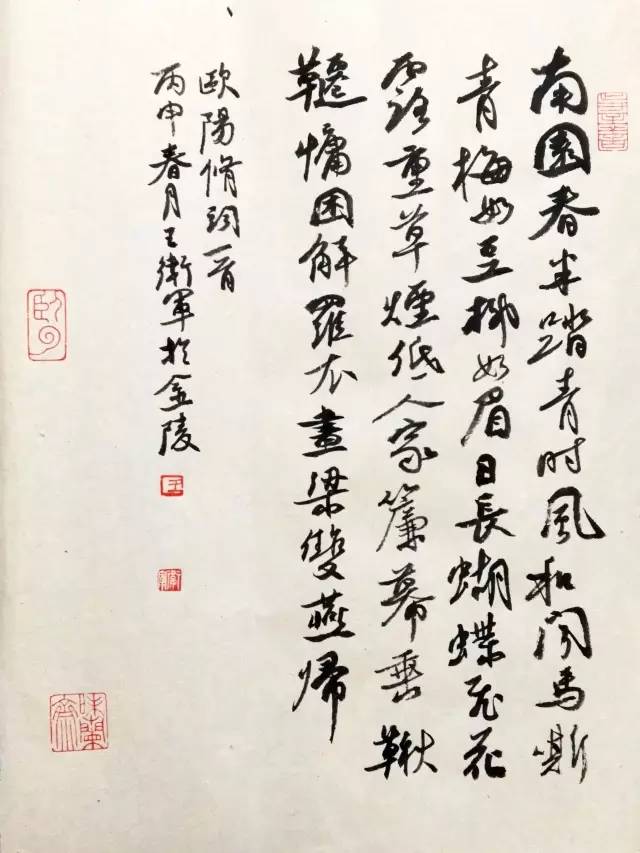 南園春半踏青時風和聞馬嘶
青梅如豆柳如眉日長蝴蝶飛花
露重草煙低人家簾幕垂鞦
韆慵困解羅衣畫梁雙燕歸
歐陽脩詞一首
丙申春月王衛軍於金陵
王
味蘭齋